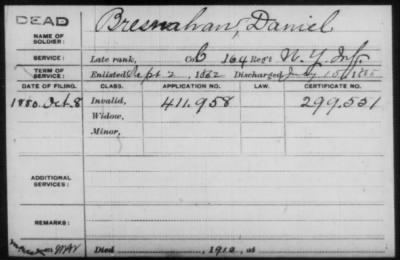 DEAD
NAME OF SOLDIER: Bresnahan, Daniel
SERVICE: Late rank, Co. C 164 Reg't N.Y. Inf.
TERM OF SERVICE: Enlisted Sept 2, 1862 Discharged July 15, 1865
DATE OF FILING. CLASS. APPLICATION NO. LAW. CERTIFICATE NO.
1880. Oct. 8 Invalid, 411.958 299.531
Widow,
Minor,
ADDITIONAL SERVICES:
REMARKS:
Died , 191 , at